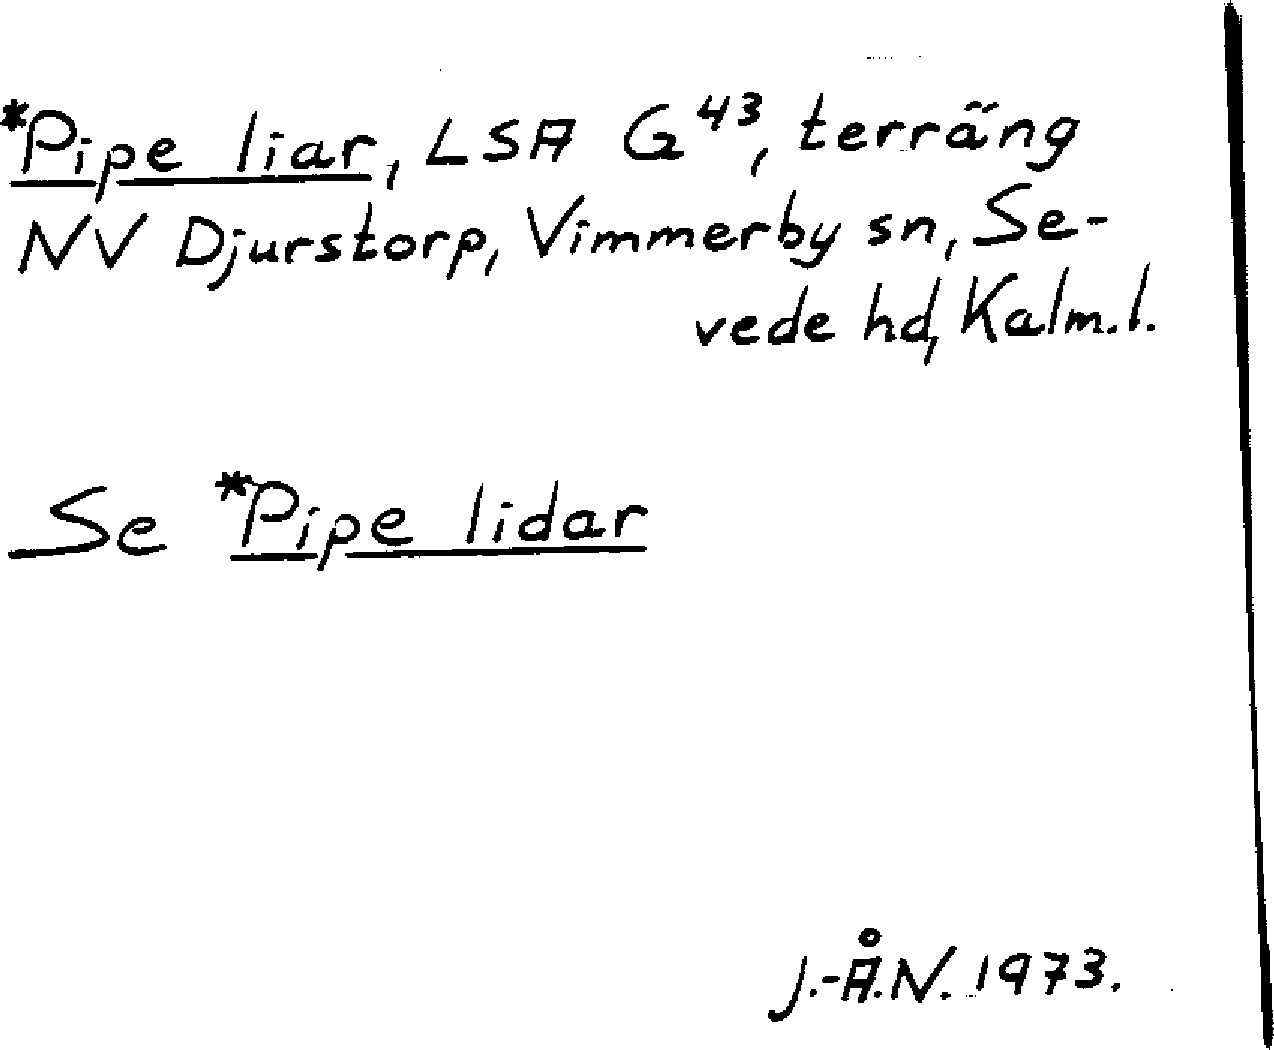 *Pipe liar, LSA G⁴³, terräng
NV Djurstorp, Vimmerby sn, Se-
vede hd, Kalm.l.
Se *Pipe lidar
J.-Å.N. 1973.